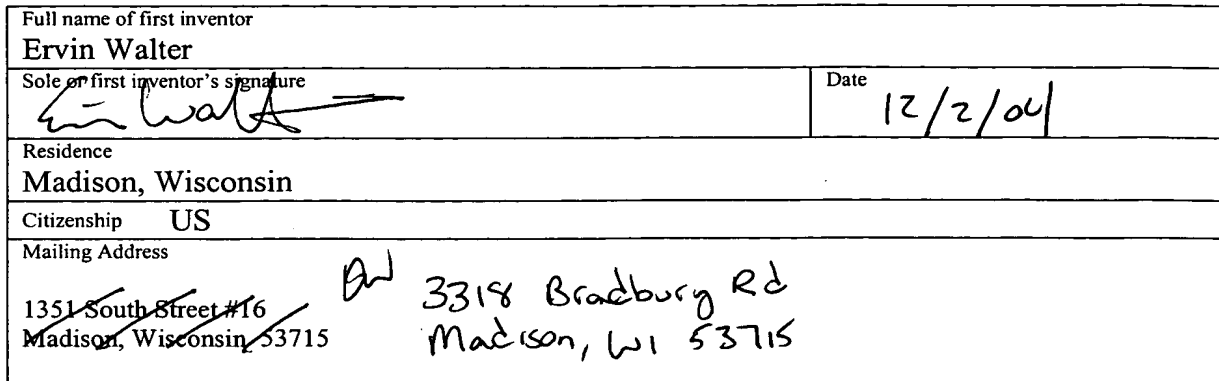 Full name of first inventor
Ervin Walter
Sole or first inventor's signature
Date
12/2/04
Residence
Madison, Wisconsin
Citizenship US
Mailing Address
1351 South Street #16
Madison, Wisconsin 53715
EW
3318 Bradbury Rd
Madison, WI 53715